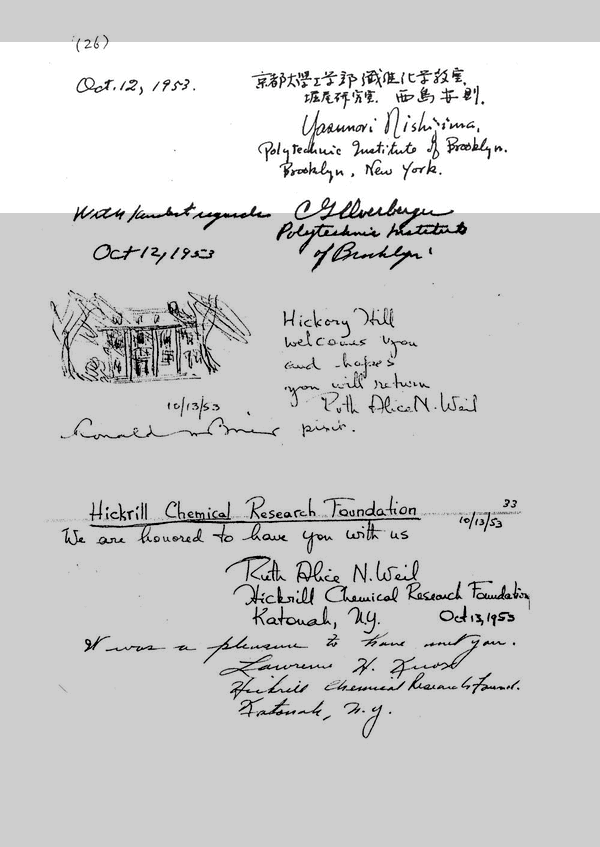 (26)
Oct. 12, 1953.
京都大學工学部 纖維化学教室.
堀尾研究室. 西島安則.
Yasunori Nishijima,
Polytechnic Institute of Brooklyn.
Brooklyn, New York.
With kindest regards C G Overberger
Polytechnic Institute
Oct 12, 1953 of Brooklyn
Hickory Hill
welcomes you
and hopes
you will return
10/13/53
Ruth Alice N. Weil
Ronald
33
Hickrill Chemical Research Foundation 10/13/53
We are honored to have you with us
Ruth Alice N. Weil
Hickrill Chemical Research Foundation
Katonah, N.Y. Oct 13, 1953
It was a pleasure to have met you.
Lawrence H. Knox
Hickrill Chemical Research Found.
Katonah, N.Y.